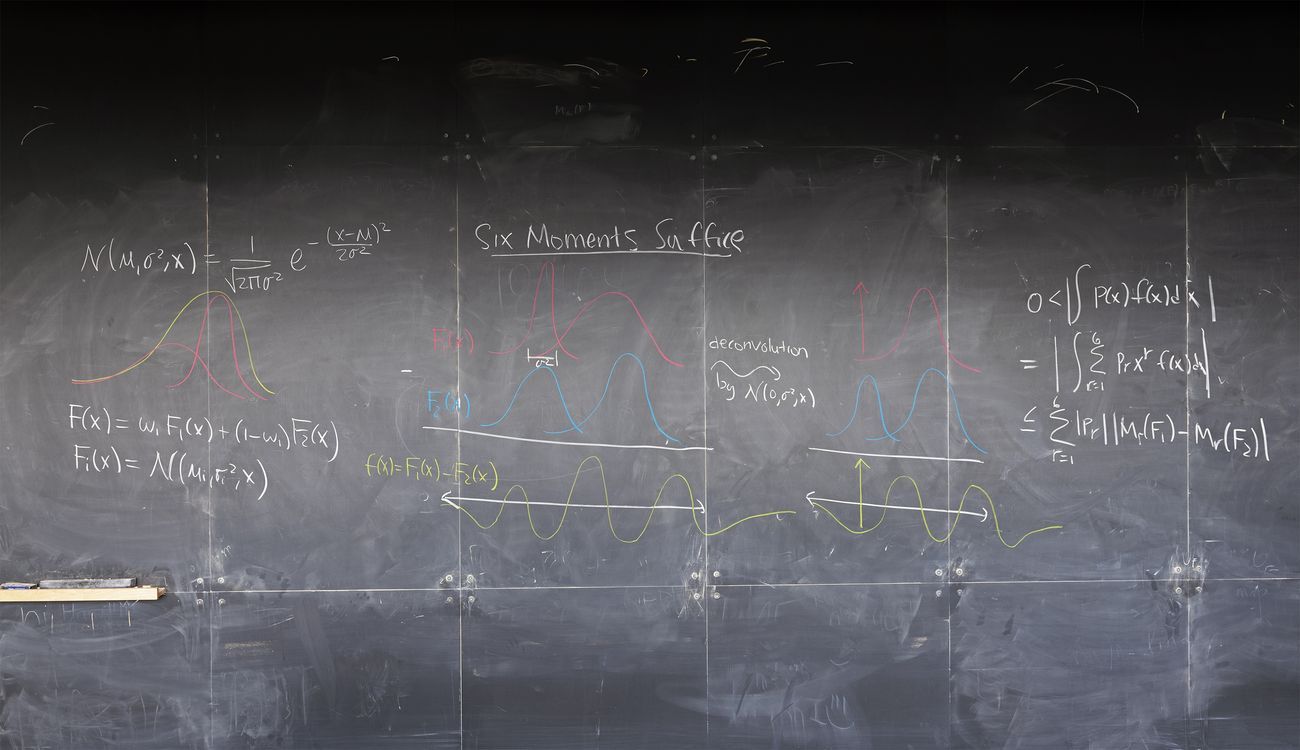 N(μ,σ²,x) = 1/√(2πσ²) e^(-(x-μ)²/(2σ²))
F(x) = ω₁F₁(x) + (1-ω₁)F₂(x)
Fᵢ(x) = N(μᵢ,σᵢ²,x)
Six Moments Suffice
F₁(x)
σ²
F₂(x)
f(x) = F₁(x) - F₂(x)
deconvolution
by N(0,σ²,x)
0 < |∫ p(x) f(x) dx|
= |∫ Σ_{r=1}^{6} pᵣ xʳ f(x) dx|
≤ Σ_{r=1}^{6} |pᵣ| |Mᵣ(F₁) - Mᵣ(F₂)|